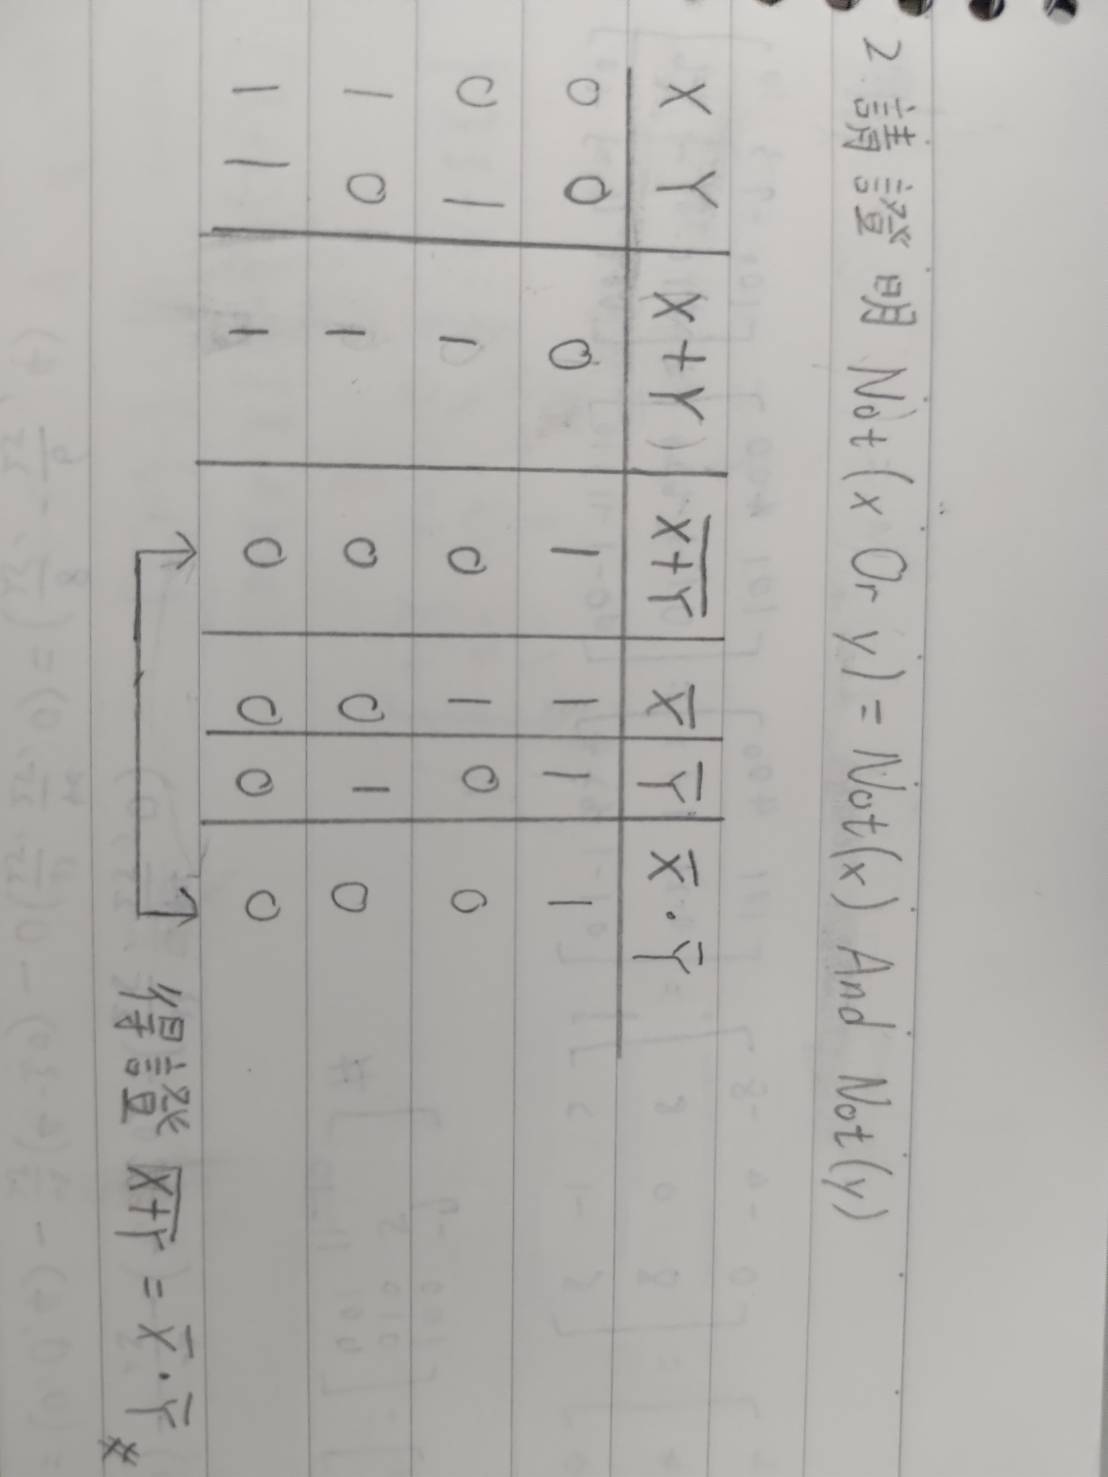 2. 請證明 Not(x Or y) = Not(x) And Not(y)
X Y X+Y X̅+̅Y̅ X̅ Y̅ X̅·Y̅
0 0 0 1 1 1 1
0 1 1 0 1 0 0
1 0 1 0 0 1 0
1 1 1 0 0 0 0
得證 X̅+̅Y̅ = X̅·Y̅ #